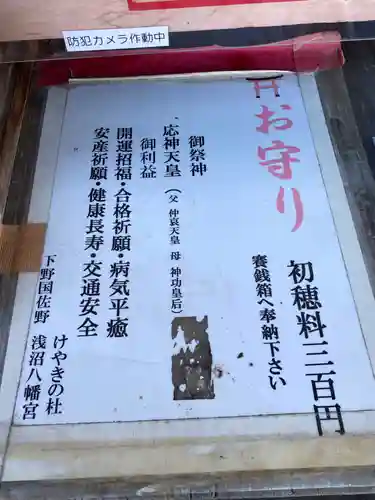 防犯カメラ作動中
お守り
初穂料三百円
賽銭箱へ奉納下さい
御祭神
一、応神天皇(父 仲哀天皇 母 神功皇后)
御利益
開運招福・合格祈願・病気平癒
安産祈願・健康長寿・交通安全
けやきの杜
下野国佐野 浅沼八幡宮